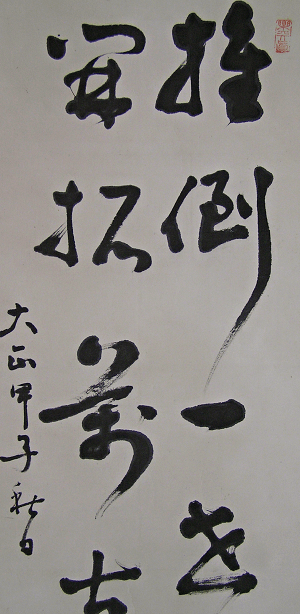 推倒一世
開拓萬古
大正甲子秋日